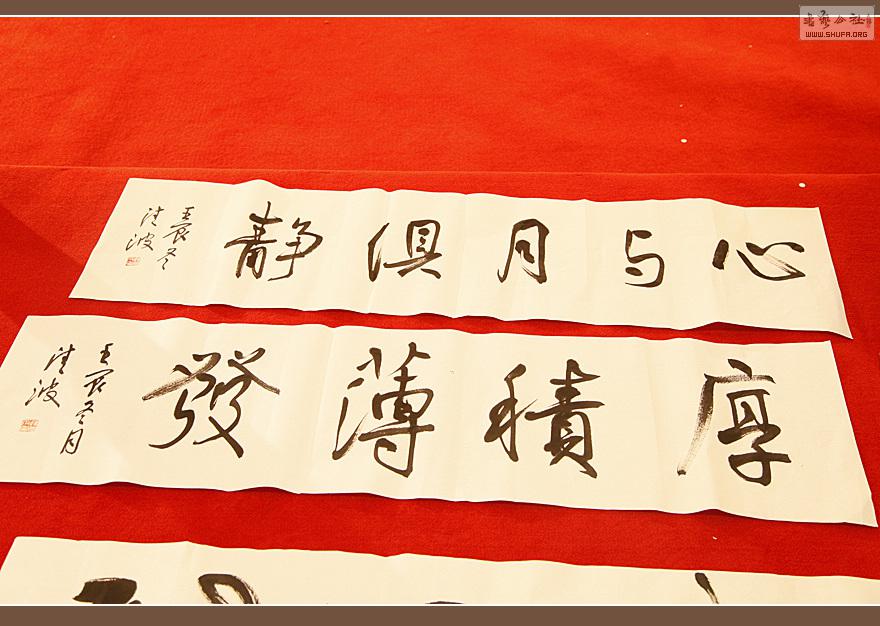 書藝公社
WWW.SHUFA.ORG
心与月俱静
壬辰冬
波
厚積薄發
壬辰冬月
波